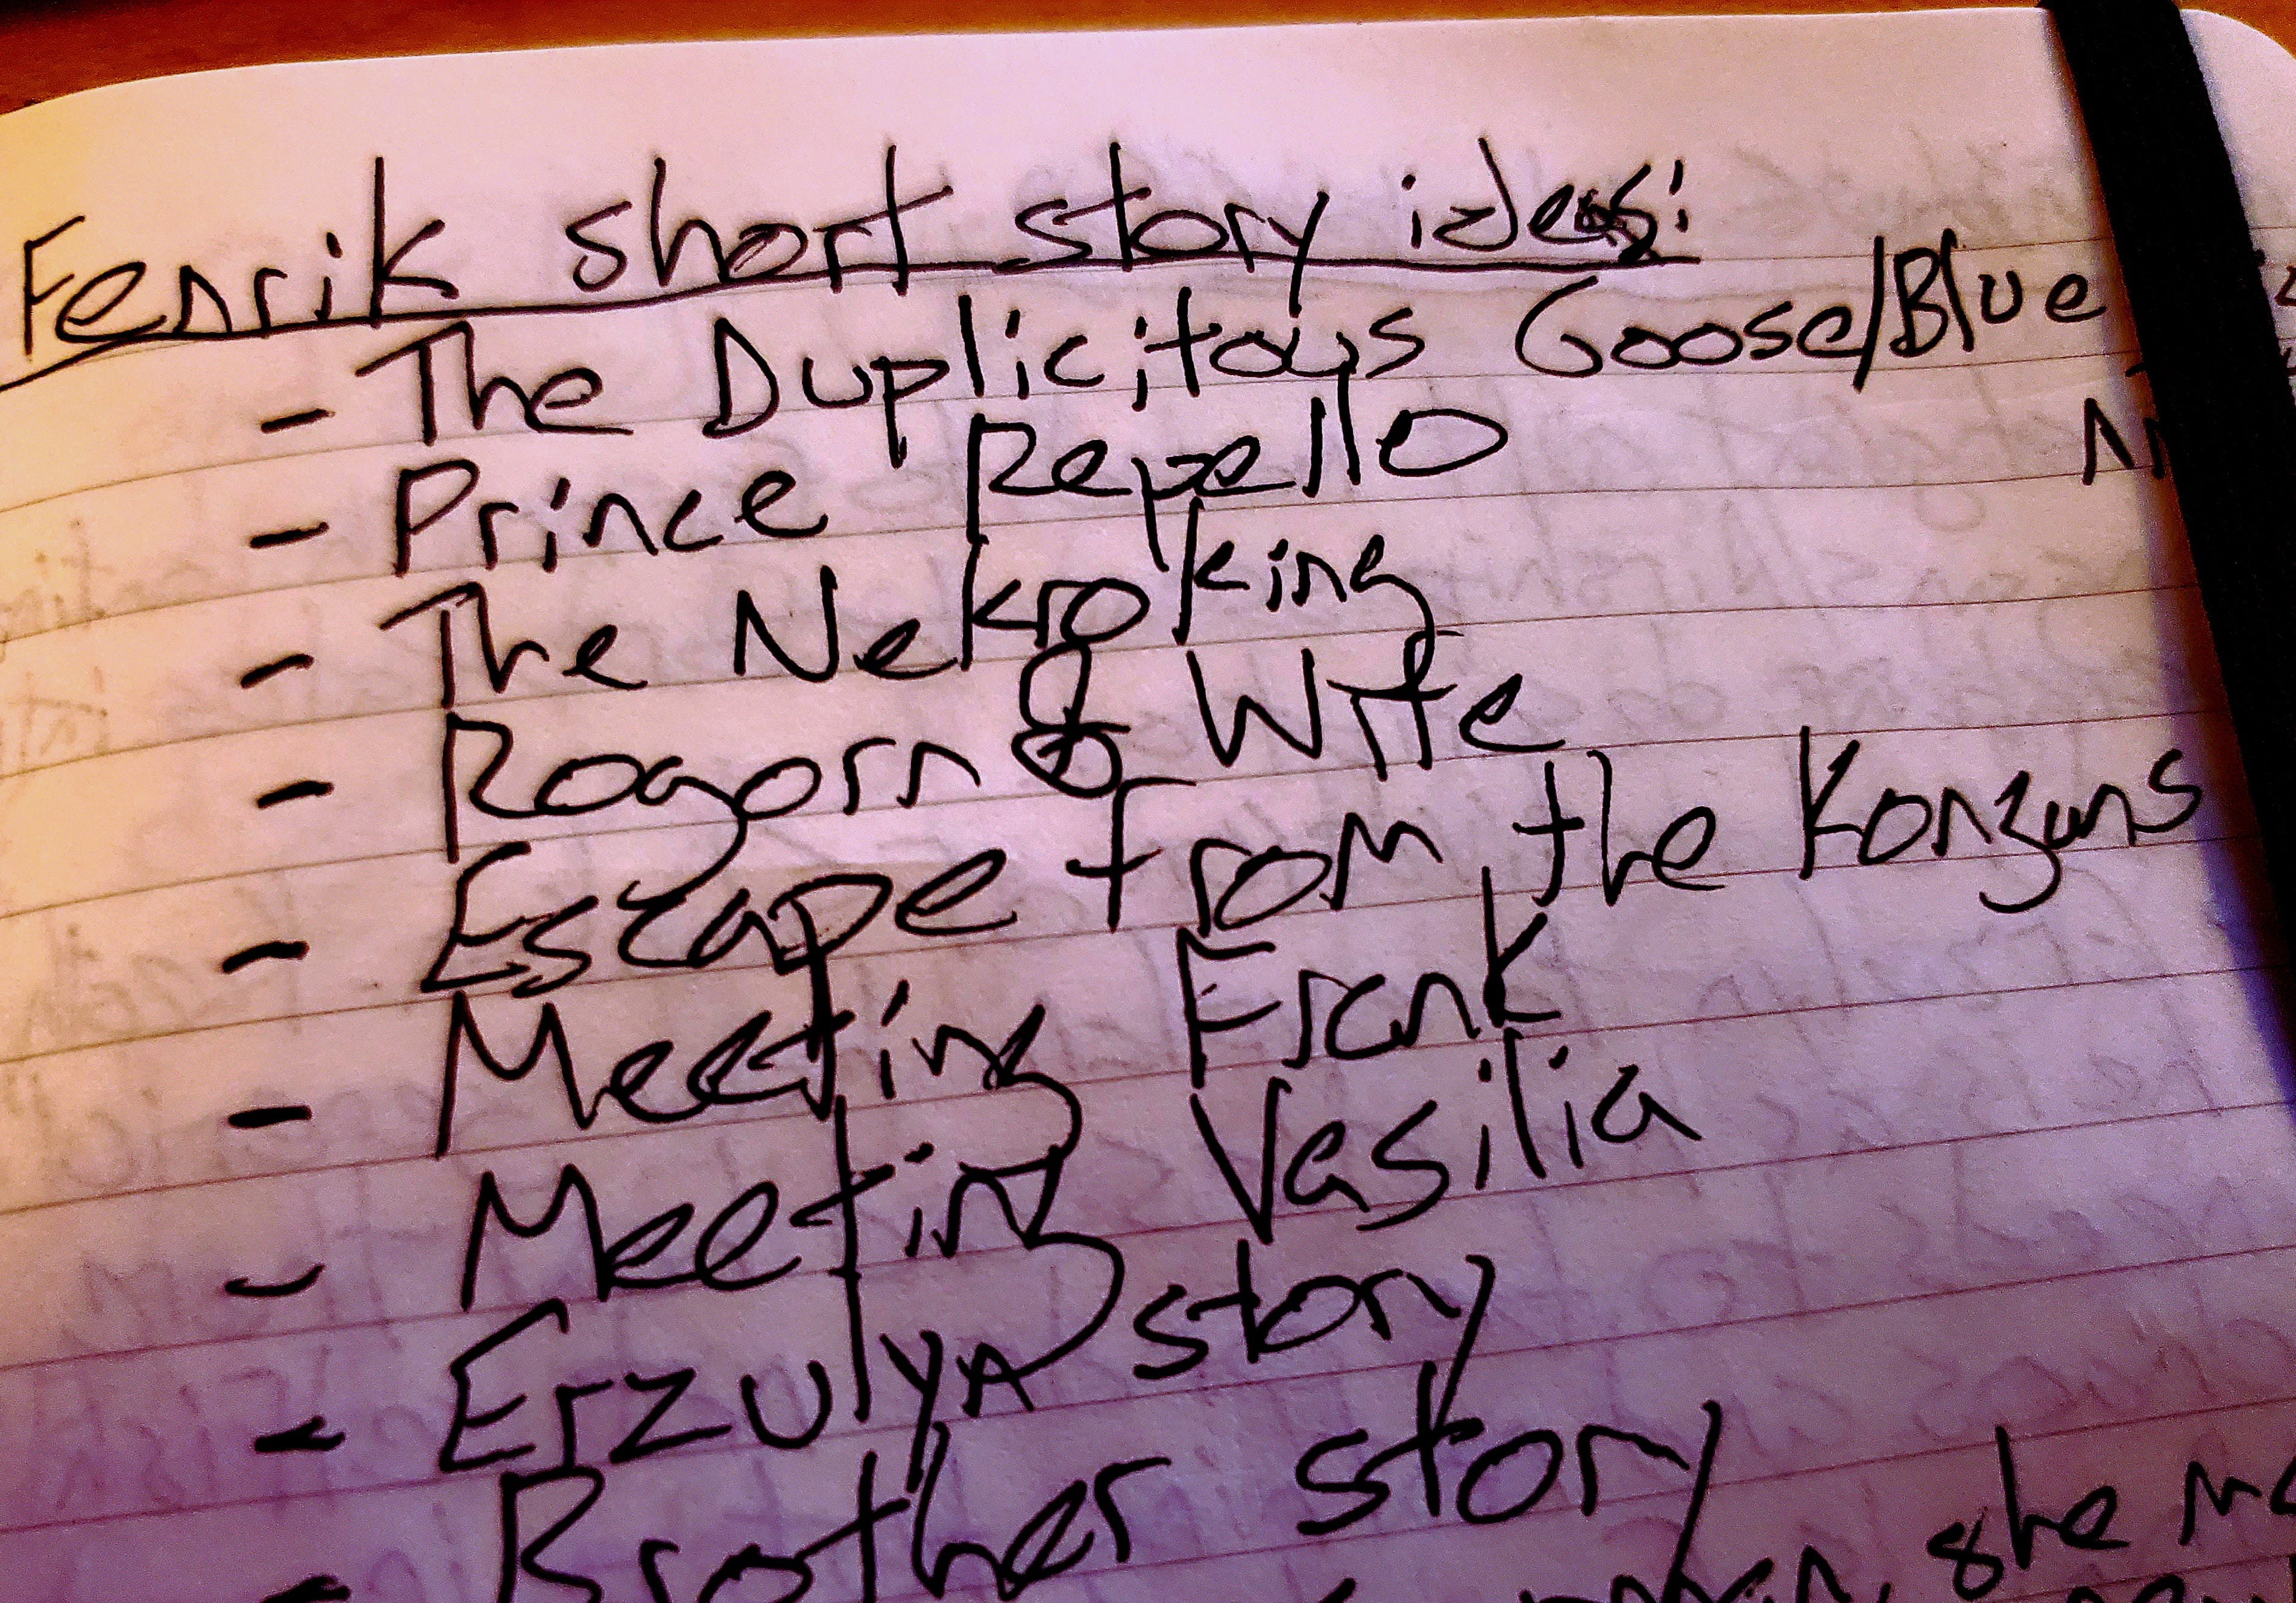 Fenrik short story ideas:
- The Duplicitous Goose/Blue
- Prince Repello
- The Nekroking
- Rogorn & Wife
- Escape from the Konzuns
- Meeting Frank
- Meeting Vasilia
- Erzulya story
- Brother story
she